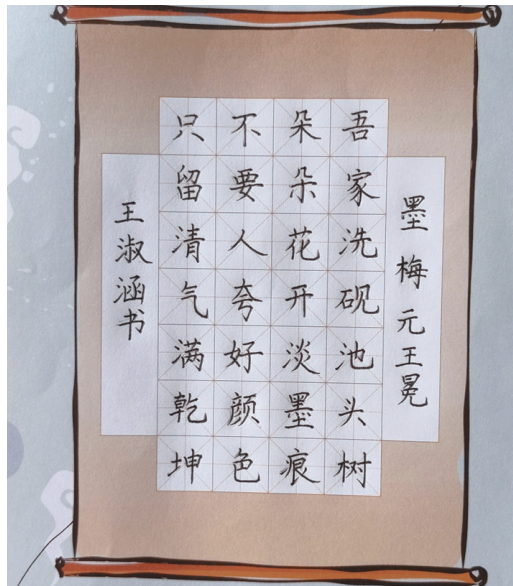 墨梅 元 王冕
吾家洗砚池头树
朵朵花开淡墨痕
不要人夸好颜色
只留清气满乾坤
王淑涵书